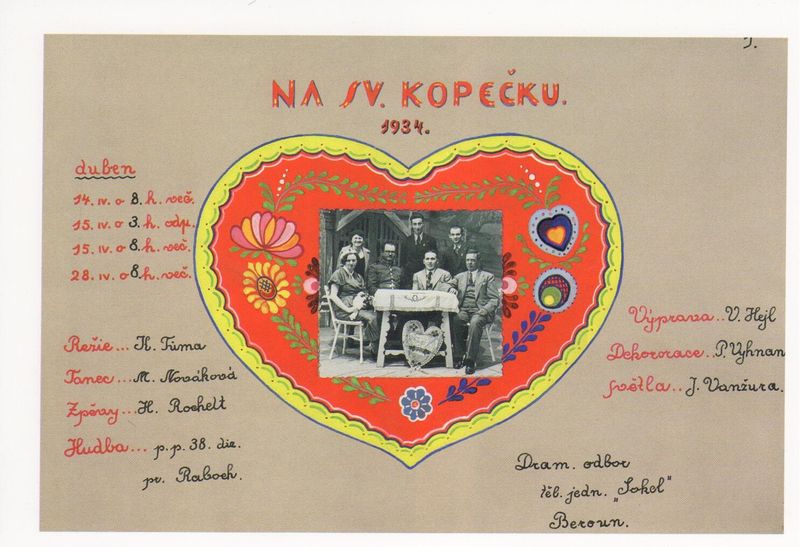 NA SV. KOPEČKU.
1934.
duben
14. IV. o 8. h. več.
15. IV. o 3. h. odp.
15. IV. o 8. h. več.
28. IV. o 8. h. več.
Režie... K. Tůma
Tanec... M. Nováková
Zpěvy... H. Rochelt
Hudba... p.p. 38. div.
pr. Raboch.
Výprava.. V. Hejl
Dekororace.. P. Vyhnan
Světla.. J. Vanžura.
Dram. odbor
těl. jedn. „Sokol"
Beroun.